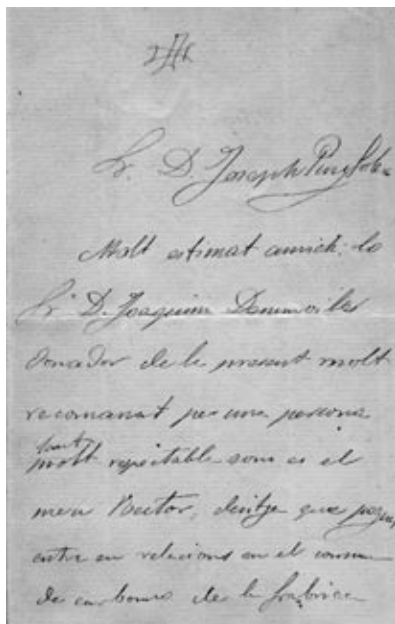 Sr. D. Joseph Puig
Molt estimat amich: lo
Sr. D. Joaquim
donador de la present molt
recomanat per una persona
tant
molt repectable som es el
meu Rector, ditja que
entre en relacions en el
de carbons de la fabrica